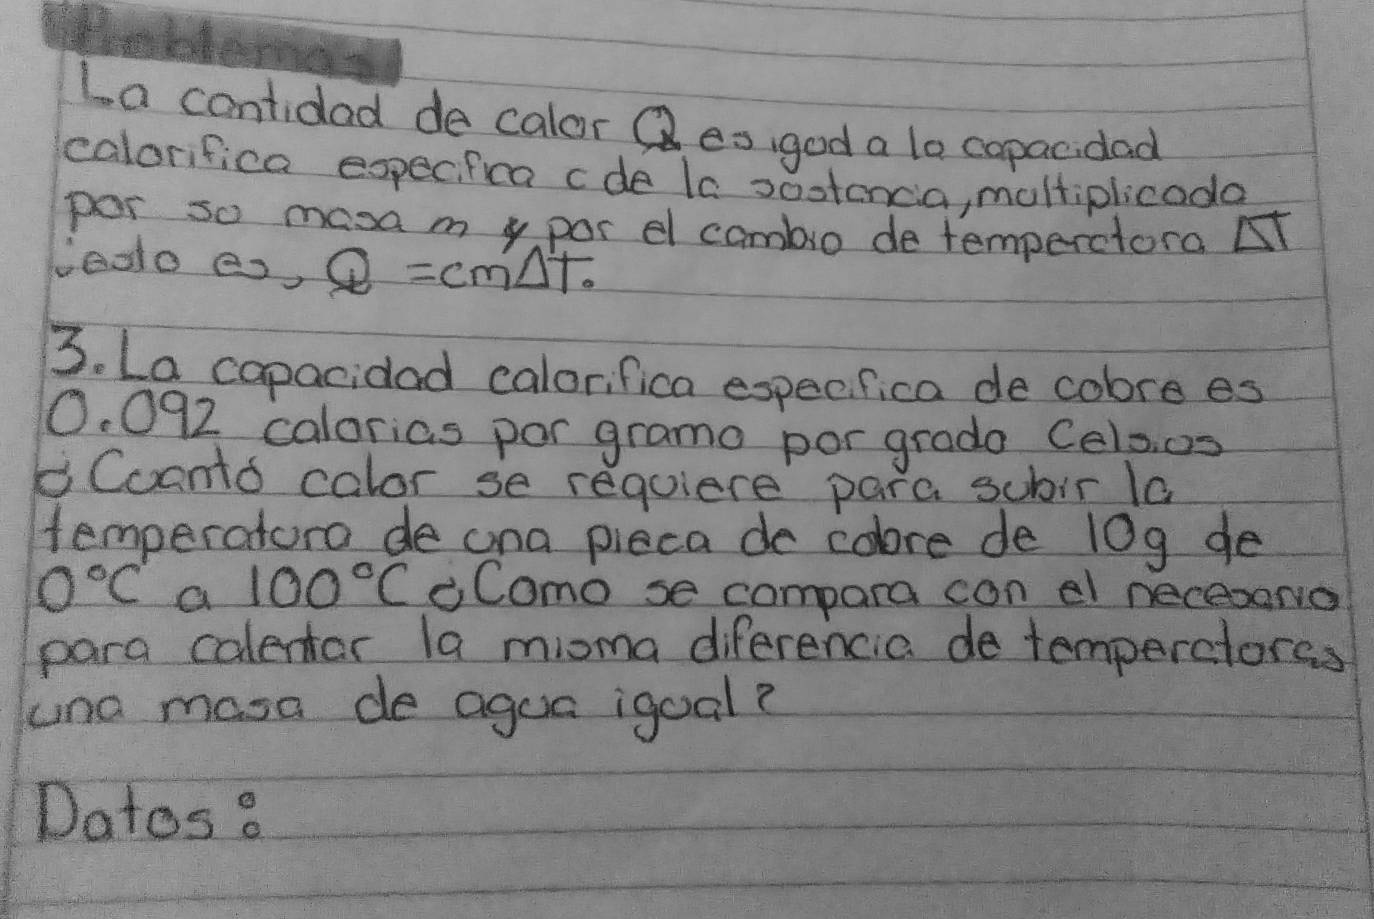 Problemas
La cantidad de calor Q es igual a la capacidad
calorifica especifica c de la sustancia, multiplicada
por su masa m y por el cambio de temperatura ΔT
; esto es, Q = cmΔT.
3. La capacidad calorifica especifica de cobre es
0.092 calorias por gramo por grado Celsius
¿Cuantó calor se requiere para subir la
temperatura de una pieca de cobre de 10g de
0°C a 100°C ¿Como se compara con el necesario
para calentar la misma diferencia de temperaturas
una masa de agua igual?
Datos: